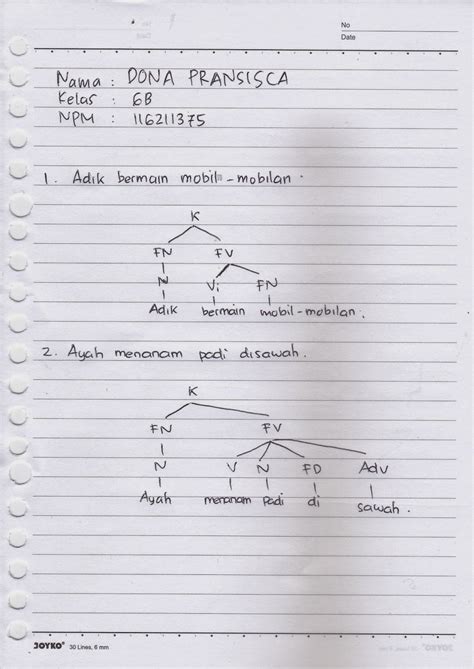 No
Date
Nama : DONA PRANSISCA
Kelas : 6B
NPM : 116211375
1. Adik bermain mobil-mobilan.
K
FN FV
N Vi FN
Adik bermain mobil-mobilan.
2. Ayah menanam padi disawah.
K
FN FV
N V N FD Adv
Ayah menanam padi di sawah.
JOYKO 30 Lines, 6 mm